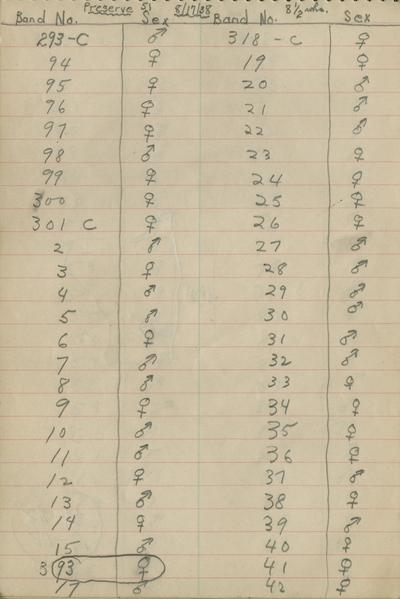 Preserve S1 8/17/38 8½ wks.
Band No. Sex Band No. Sex
293-C ♂ 318-C ♀
94 ♀ 19 ♀
95 ♀ 20 ♂
96 ♀ 21 ♂
97 ♀ 22 ♂
98 ♂ 23 ♀
99 ♀ 24 ♀
300 ♀ 25 ♀
301 C ♀ 26 ♀
2 ♂ 27 ♂
3 ♀ 28 ♂
4 ♂ 29 ♂
5 ♂ 30 ♂
6 ♀ 31 ♂
7 ♂ 32 ♂
8 ♂ 33 ♀
9 ♀ 34 ♀
10 ♂ 35 ♀
11 ♂ 36 ♀
12 ♀ 37 ♂
13 ♂ 38 ♀
14 ♀ 39 ♂
15 ♂ 40 ♀
393 ♀ 41 ♀
17 ♂ 42 ♀